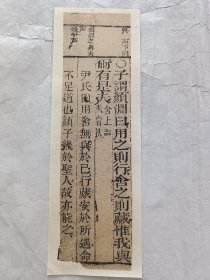 ○子謂顏淵曰用之則行舍之則藏惟我與
爾有是夫
舍上聲
夫音扶
尹氏曰用舍無與於己行藏安於所遇命
不足道也顏子幾於聖人故亦能之